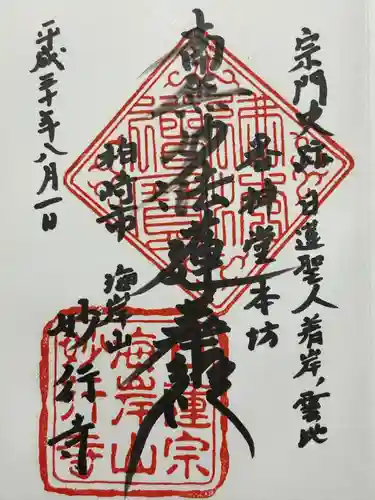 宗門史跡日蓮聖人着岸霊地
番神堂本坊
南無妙法蓮華経
柏崎市
海岸山
妙行寺
平成三十年八月一日
日蓮宗
海岸山
妙行寺